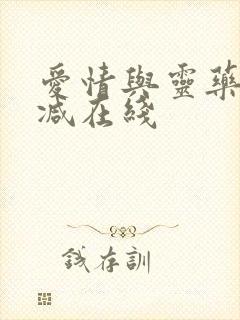 愛情與靈藥
減在綫
錢存訓